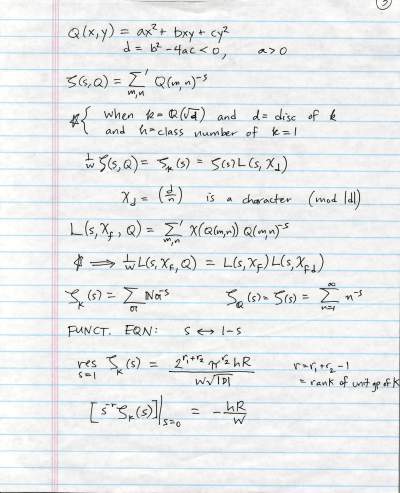 3
Q(x,y) = ax² + bxy + cy²
d = b² - 4ac < 0, a > 0
ζ(s,Q) = Σ'_{m,n} Q(m,n)^{-s}
when k = Q(√d) and d = disc of k
and h = class number of k = 1
1/w ζ(s,Q) = ζ_k(s) = ζ(s) L(s, χ_d)
χ_d = (d/n) is a character (mod |d|)
L(s, χ_f, Q) = Σ'_{m,n} χ(Q(m,n)) Q(m,n)^{-s}
⟹ 1/w L(s, χ_f, Q) = L(s, χ_f) L(s, χ_{fd})
ζ_k(s) = Σ_𝔞 ℕ𝔞^{-s} ζ_Q(s) = ζ(s) = Σ_{n=1}^∞ n^{-s}
FUNCT. EQN: s ↔ 1-s
res_{s=1} ζ_k(s) = 2^{r₁+r₂} π^{r₂} hR / w√|D| r = r₁ + r₂ - 1
= rank of unit gp of K
[s^{-r} ζ_k(s)]|_{s=0} = - hR/w